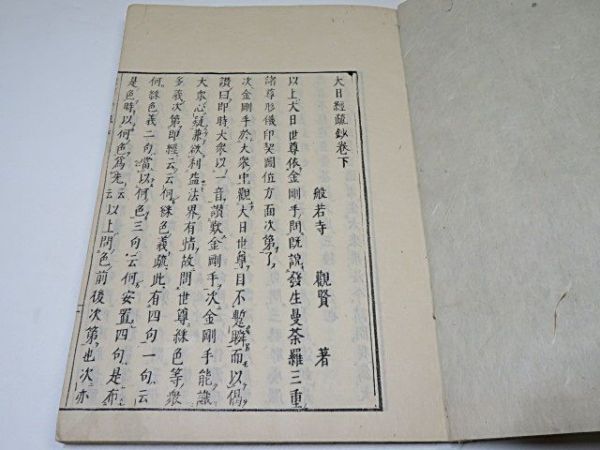 大日經疏鈔卷下
般若寺 觀賢 著
以上大日世尊依金剛手問既說發生曼荼羅三重
諸尊形儀印契圖位方面次第了
次金剛手於大衆中觀大日世尊目不暫瞬而以偈
讚曰卽時大衆以一音讚歎金剛手次金剛手能識
大衆心疑兼欲利益法界有情故問世尊綵色等衆
多義次第卽經云云何綵色義疏此有四句一句云
何綵色義二句當以何色三句云何安置四句是布
是色時以何色爲先云以上問色前後次第也次亦